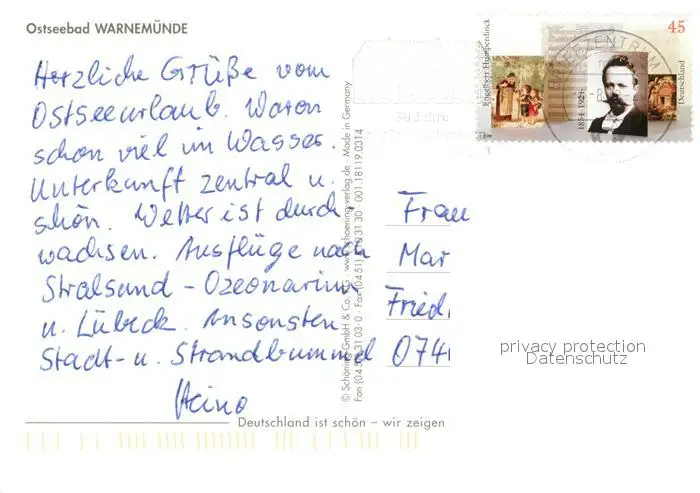 Ostseebad WARNEMÜNDE
Herzliche Grüße vom
Ostseeurlaub. Waren
schon viel im Wasser.
Unterkunft zentral u.
schön. Wetter ist durch,
wachsen. Ausflüge nach
Stralsund - Ozeonarium
u. Lübeck. Ansonsten
Stadt- u. Strandbummel
Heino
© Schöning GmbH & Co. KG · www.schoening-verlag.de · Made in Germany
Fon (04 51) 3 10 3-0 · Fax (04 51) 31 30 · 001.18119.0314
Engelbert Humperdinck
1854-1921
45
Deutschland
BRIEFZENTRUM
Jahre
Frau
Mar
Fried
074
privacy protection
Datenschutz
Deutschland ist schön – wir zeigen